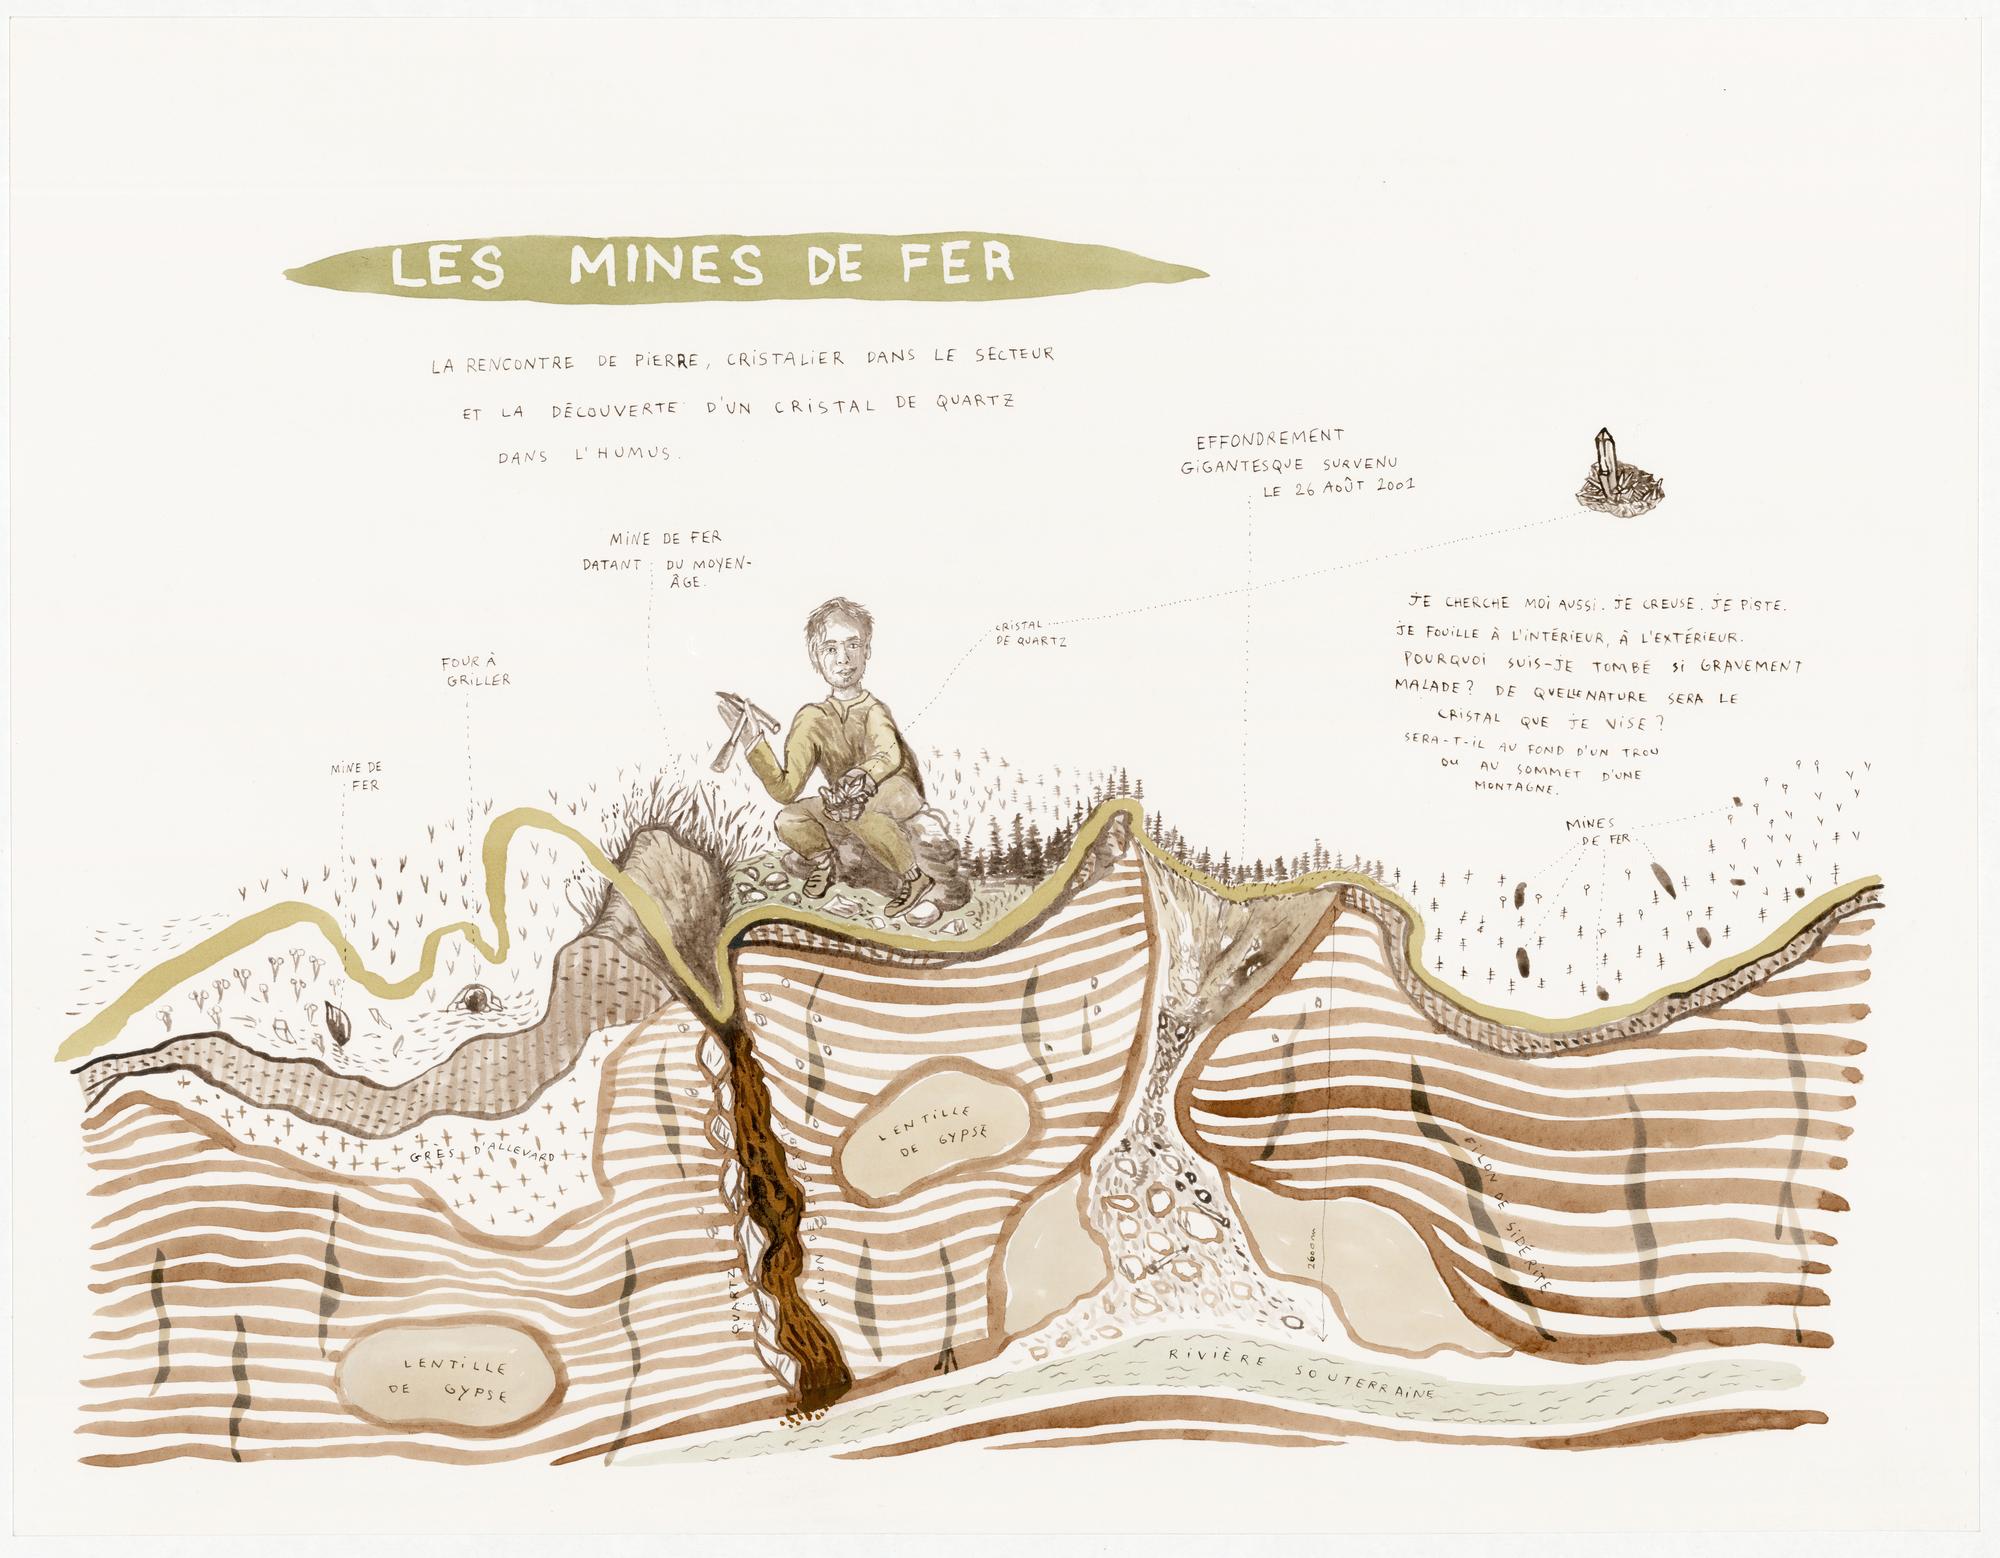 LES MINES DE FER
LA RENCONTRE DE PIERRE, CRISTALIER DANS LE SECTEUR
ET LA DÉCOUVERTE D'UN CRISTAL DE QUARTZ
DANS L'HUMUS.
EFFONDREMENT
GIGANTESQUE SURVENU
LE 26 AOÛT 2001
MINE DE FER
DATANT DU MOYEN-
ÂGE.
CRISTAL
DE QUARTZ
FOUR À
GRILLER
MINE DE
FER
JE CHERCHE MOI AUSSI. JE CREUSE. JE PISTE.
JE FOUILLE À L'INTÉRIEUR, À L'EXTÉRIEUR.
POURQUOI SUIS-JE TOMBÉ SI GRAVEMENT
MALADE? DE QUELLE NATURE SERA LE
CRISTAL QUE JE VISE?
SERA-T-IL AU FOND D'UN TROU
OU AU SOMMET D'UNE
MONTAGNE.
MINES
DE FER
GRÈS D'ALLEVARD
LENTILLE
DE GYPSE
QUARTZ
FILON DE SIDÉRITE
2600m
FILON DE SIDÉRITE
LENTILLE
DE GYPSE
RIVIÈRE SOUTERRAINE